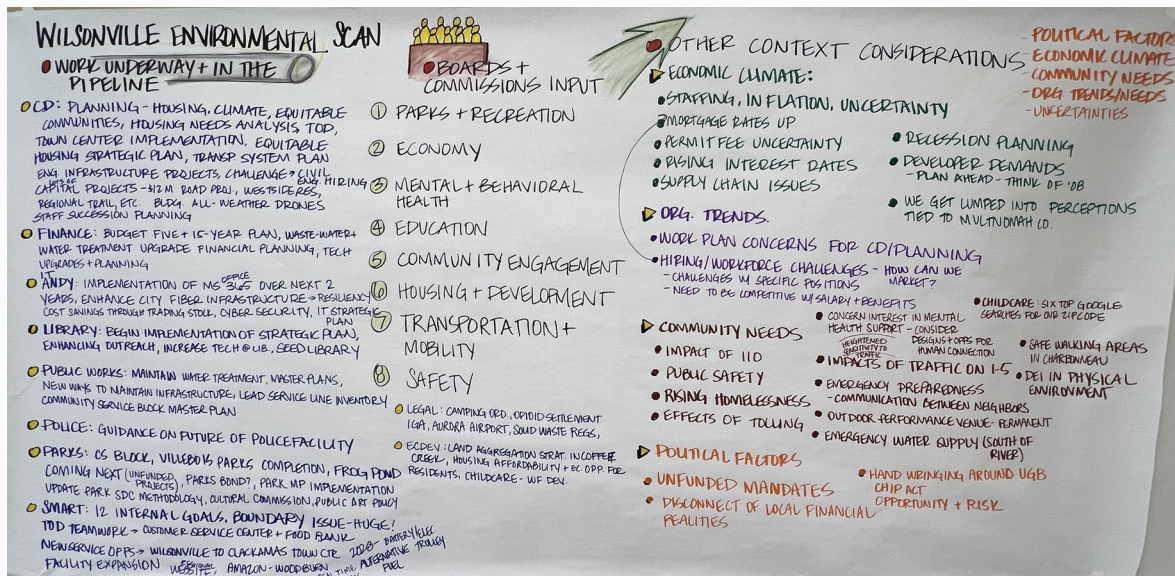 WILSONVILLE ENVIRONMENTAL SCAN
WORK UNDERWAY + IN THE
PIPELINE
CD: PLANNING - HOUSING, CLIMATE, EQUITABLE
COMMUNITIES, HOUSING NEEDS ANALYSIS, TOD,
TOWN CENTER IMPLEMENTATION, EQUITABLE
HOUSING STRATEGIC PLAN, TRANSP SYSTEM PLAN
ENG INFRASTRUCTURE PROJECTS, CHALLENGE → CIVIL
ENG. HIRING
LOTS OF
CAPITAL PROJECTS - $12M ROAD PROJ., WESTSIDE RES,
REGIONAL TRAIL, ETC. BLDG. ALL-WEATHER DRONES
STAFF SUCCESSION PLANNING
FINANCE: BUDGET FIVE + 15-YEAR PLAN, WASTE-WATER +
WATER TREATMENT UPGRADE FINANCIAL PLANNING, TECH
UPGRADES + PLANNING
I.T.
ANDY: IMPLEMENTATION OF MS OFFICE 365 OVER NEXT 2
YEARS, ENHANCE CITY FIBER INFRASTRUCTURE → RESILIENCY
COST SAVINGS THROUGH TRADING STOCK, CYBER SECURITY, IT STRATEGIC
PLAN
LIBRARY: BEGIN IMPLEMENTATION OF STRATEGIC PLAN,
ENHANCING OUTREACH, INCREASE TECH @ LIB, SEED LIBRARY
PUBLIC WORKS: MAINTAIN WATER TREATMENT, MASTER PLANS,
NEW WAYS TO MAINTAIN INFRASTRUCTURE, LEAD SERVICE LINE INVENTORY
COMMUNITY SERVICE BLOCK MASTER PLAN
POLICE: GUIDANCE ON FUTURE OF POLICE FACILITY
PARKS: CS BLOCK, VILLEBOIS PARKS COMPLETION, FROG POND
COMING NEXT (UNFUNDED PROJECTS), PARKS BOND?, PARK MP IMPLEMENTATION
UPDATE PARK SDC METHODOLOGY, CULTURAL COMMISSION, PUBLIC ART POLICY
SMART: 12 INTERNAL GOALS, BOUNDARY ISSUE - HUGE!
TOD TEAMWORK → CUSTOMER SERVICE CENTER + FOOD BANK
NEW SERVICE OPPS → WILSONVILLE TO CLACKAMAS TOWN CTR 2028 - BATTERY ELEC
FACILITY EXPANSION WEBSITE, AMAZON - WOODBURN TIME ALTERNATIVE TROLLEY
FUEL
BOARDS +
COMMISSIONS INPUT
1 PARKS + RECREATION
2 ECONOMY
3 MENTAL + BEHAVIORAL
HEALTH
4 EDUCATION
5 COMMUNITY ENGAGEMENT
6 HOUSING + DEVELOPMENT
7 TRANSPORTATION +
MOBILITY
8 SAFETY
LEGAL: CAMPING ORD., OPIOID SETTLEMENT
IGA, AURORA AIRPORT, SOLID WASTE REGS,
EC DEV: LAND AGGREGATION STRAT. IN COFFEE
CREEK, HOUSING AFFORDABILITY + EC OPP. FOR
RESIDENTS, CHILDCARE - WF DEV.
OTHER CONTEXT CONSIDERATIONS
- POLITICAL FACTORS
- ECONOMIC CLIMATE
- COMMUNITY NEEDS
- ORG TRENDS/NEEDS
- UNCERTAINTIES
ECONOMIC CLIMATE:
STAFFING, INFLATION, UNCERTAINTY
MORTGAGE RATES UP
PERMIT FEE UNCERTAINTY
RISING INTEREST RATES
SUPPLY CHAIN ISSUES
RECESSION PLANNING
DEVELOPER DEMANDS
- PLAN AHEAD - THINK OF '08
WE GET LUMPED INTO PERCEPTIONS
TIED TO MULTNOMAH CO.
ORG. TRENDS.
WORK PLAN CONCERNS FOR CD/PLANNING
HIRING/WORKFORCE CHALLENGES - HOW CAN WE
MARKET?
- CHALLENGES W/ SPECIFIC POSITIONS
- NEED TO BE COMPETITIVE W/ SALARY + BENEFITS
COMMUNITY NEEDS
IMPACT OF 110
PUBLIC SAFETY
RISING HOMELESSNESS
EFFECTS OF TOLLING
CONCERN INTEREST IN MENTAL
HEALTH SUPPORT - CONSIDER
DESIGNS + OPPS FOR
HUMAN CONNECTION
HEIGHTENED
SENSITIVITY TO
TRAFFIC
IMPACTS OF TRAFFIC ON I-5
EMERGENCY PREPAREDNESS
- COMMUNICATION BETWEEN NEIGHBORS
OUTDOOR PERFORMANCE VENUE - PERMANENT
EMERGENCY WATER SUPPLY (SOUTH OF
RIVER)
CHILDCARE: SIX TOP GOOGLE
SEARCHES FOR OUR ZIPCODE
SAFE WALKING AREAS
IN CHARBONNEAU
DEI IN PHYSICAL
ENVIRONMENT
POLITICAL FACTORS
UNFUNDED MANDATES
DISCONNECT OF LOCAL FINANCIAL
REALITIES
HAND WRINGING AROUND UGB
CHIP ACT
OPPORTUNITY + RISK